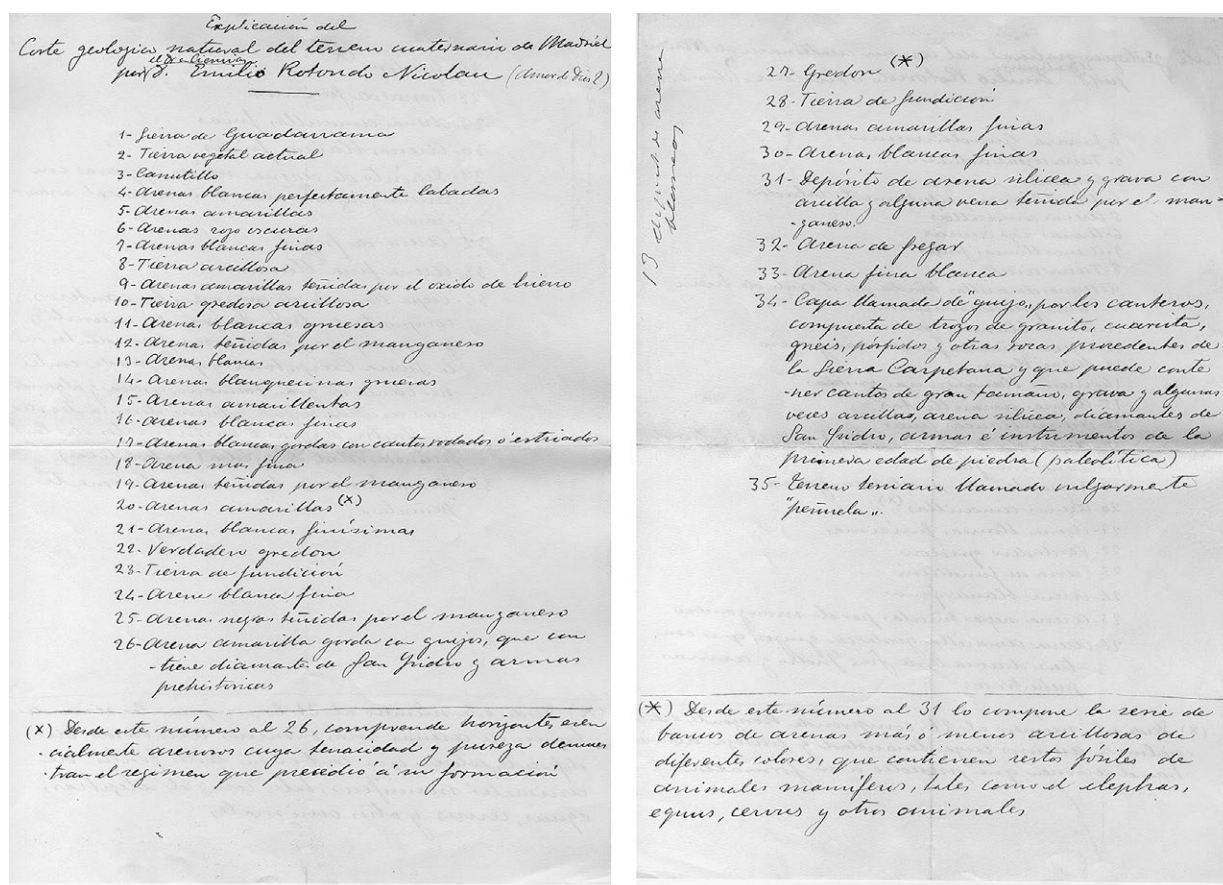 Explicación del
Corte geologico natural del terreno cuaternario de Madrid
por D. Emilio Rotondo Nicolau (Amor de Dios 2)
1- Sierra de Guadarrama
2- Tierra vegetal actual
3- Canutillo
4- Arenas blancas perfectamente labadas
5- Arenas amarillas
6- Arenas rojo oscuras
7- Arenas blancas finas
8- Tierra arcillosa
9- Arenas amarillas teñidas por el oxido de hierro
10- Tierra gredosa arcillosa
11- Arenas blancas gruesas
12- Arenas teñidas por el manganeso
13- Arenas blancas
14- Arenas blanquecinas gruesas
15- Arenas amarillentas
16- Arenas blancas finas
17- Arenas blancas gordas con cantos rodados ó estriados
18- Arena mas fina
19- Arenas teñidas por el manganeso
20- Arenas amarillas (X)
21- Arenas blancas finísimas
22- Verdadero gredon
23- Tierra de fundición
24- Arena blanca fina
25- Arenas negras teñidas por el manganeso
26- Arena amarilla gorda con guijos, que con
-tiene diamantes de San Ysidro y armas
prehistoricas
(X) Desde este número al 26, comprende horizontes esen
-cialmente arenosos cuya tenacidad y pureza demues
-tran el regimen que presidió á su formación
13 depósito de arenas
blancas
27- Gredon (*)
28- Tierra de fundición
29- Arenas amarillas finas
30- Arenas blancas finas
31- Depósito de arena silicea y grava con
arcilla y alguna vena teñida por el man-
-ganeso.
32- Arena de fregar
33- Arena fina blanca
34- Capa llamada de "guijo, por los canteros,
compuesta de trozos de granito, cuarcita,
gneis, pórfidos y otras rocas procedentes de
la Sierra Carpetana y que puede conte
-ner cantos de gran tamaño, grava y algunas
veces arcillas, arena silicea, diamantes de
San Ysidro, armas é instrumentos de la
primera edad de piedra (paleolitica)
35- Terreno terciario llamado vulgarmente
"peñuela".
(*) Desde este número al 31 lo compone la serie de
bancos de arenas más ó menos arcillosas de
diferentes colores, que contienen restos fósiles de
animales mamíferos, tales como el elephas,
equus, cervus y otros animales